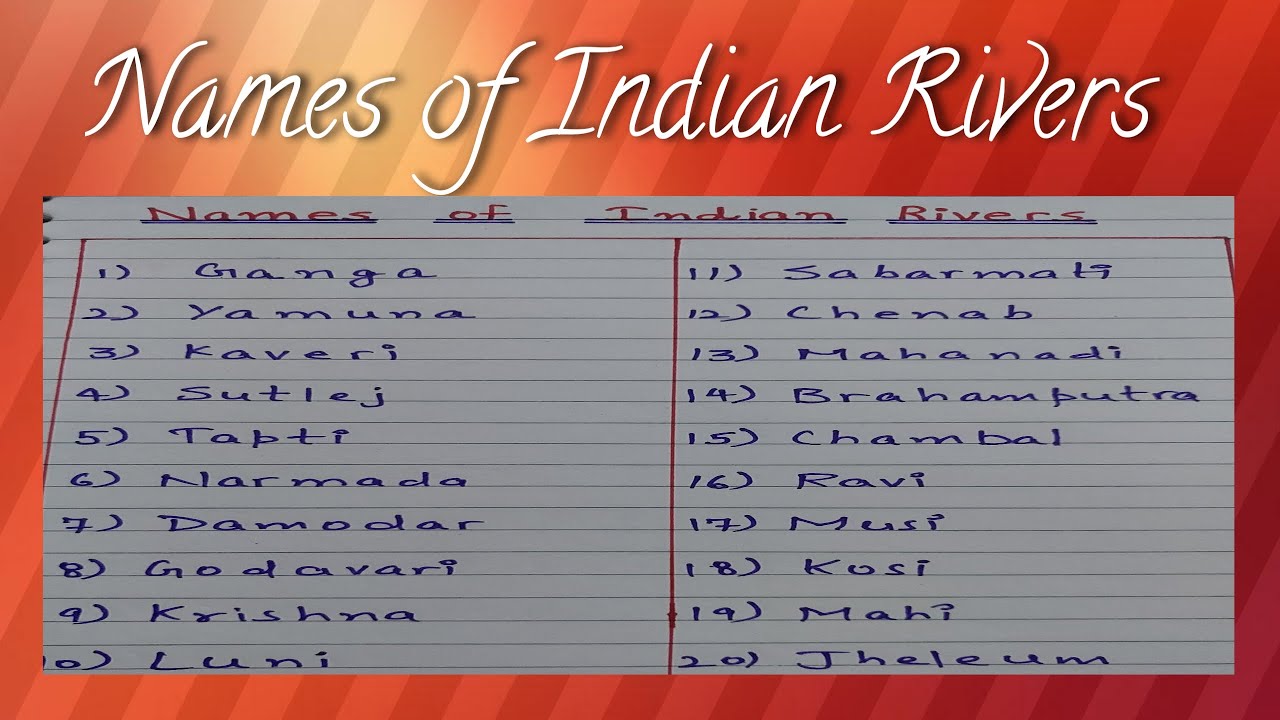 Names of Indian Rivers
Names of Indian Rivers
1) Ganga
2) Yamuna
3) Kaveri
4) Sutlej
5) Tapti
6) Narmada
7) Damodar
8) Godavari
9) Krishna
10) Luni
11) Sabarmati
12) Chenab
13) Mahanadi
14) Brahamputra
15) Chambal
16) Ravi
17) Musi
18) Kosi
19) Mahi
20) Jheleum